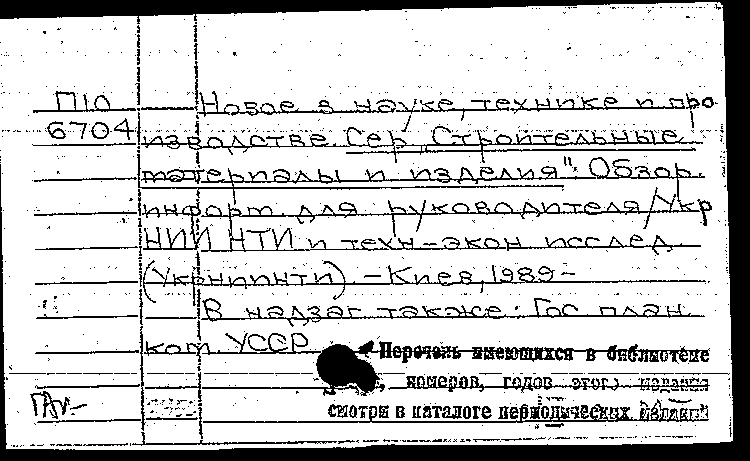 П10
6704
Новое в науке, технике и про
изводстве. Сер. „Строительные
материалы и изделия": Обзор.
информ. для руководителя/Укр
НИИ НТИ и техн-экон исслед.
(УкрНИИНТИ). -Киев, 1989-
В надзаг также: Гос план.
ком. УССР
Перечень имеющихся в библиотеке
, номеров, годов этого издания
смотри в каталоге периодических изданий